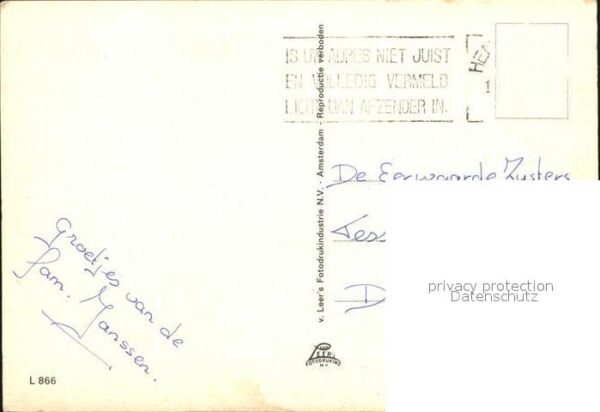 IS UW ADRES NIET JUIST
EN VOLLEDIG VERMELD
LICHT DAN AFZENDER IN.
v. Leer's Fotodrukindustrie N.V. - Amsterdam - Reproductie verboden
De Eerwaarde Zusters
privacy protection
Datenschutz
Groetjes van de
Fam. Janssen.
L 866
VAN
LEER's
FOTODRUKIND
N.V.